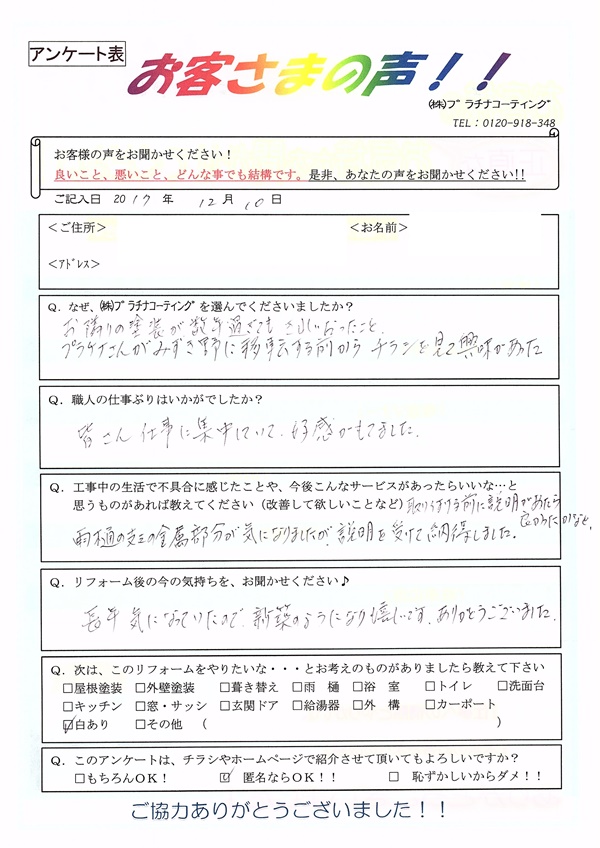 アンケート表
お客さまの声！！
㈱ﾌﾟラチナコーティング
TEL：0120-918-348
お客様の声をお聞かせください！
良いこと、悪いこと、どんな事でも結構です。是非、あなたの声をお聞かせください!!
ご記入日 2017 年 12 月 10 日
＜ご住所＞ ＜お名前＞
＜ｱﾄﾞﾚｽ＞
Q．なぜ、㈱ﾌﾟラチナコーティングを選んでくださいましたか？
お隣りの塗装が数年過ぎても きれいだったこと、
プラチナさんがみずき野に移転する前から チラシを見て興味があった
Q．職人の仕事ぶりはいかがでしたか？
皆さん 仕事に集中していて、好感がもてました。
Q．工事中の生活で不具合に感じたことや、今後こんなサービスがあったらいいな…と
思うものがあれば教えてください（改善して欲しいことなど） 取り付ける前に説明があったら
良かったかなと、
雨樋の支えの金属部分が気になりましたが、説明を受けて納得しました。
Q．リフォーム後の今の気持ちを、お聞かせください♪
長年 気になっていたので、新築のようになり嬉しいです。ありがとうございました。
Q．次は、このリフォームをやりたいな・・・とお考えのものがありましたら教えて下さい
□屋根塗装 □外壁塗装 □葺き替え □雨 樋 □浴 室 □トイレ □洗面台
□キッチン □窓・サッシ □玄関ドア □給湯器 □外 構 □カーポート
☑白あり □その他 （ ）
Q．このアンケートは、チラシやホームページで紹介させて頂いてもよろしいですか？
□もちろんOK！ ☑ 匿名ならOK！！ □ 恥ずかしいからダメ！！
ご協力ありがとうございました！！